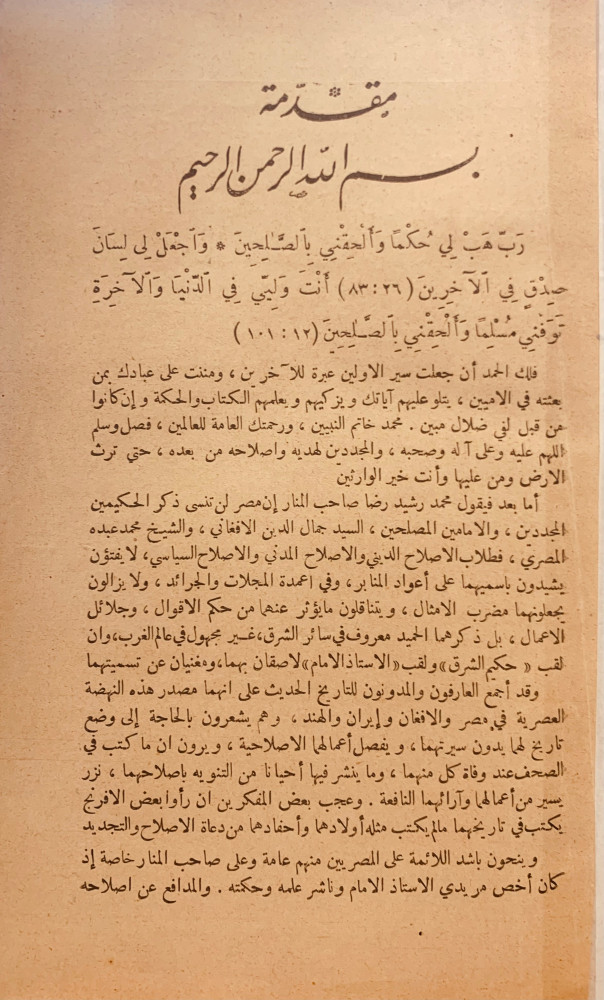 مقدّمة
بسم الله الرحمن الرحيم
رَبِّ هَبْ لِي حُكْمًا وَأَلْحِقْنِي بِٱلصَّـٰلِحِينَ * وَٱجْعَلْ لِى لِسَانَ
صِدْقٍ فِي ٱلْآخِرِينَ (٢٦ : ٨٣) أَنْتَ وَلِيِّي فِي ٱلدُّنْيَا وَٱلْآخِرَةِ
تَوَفَّنِي مُسْلِمًا وَأَلْحِقْنِي بِٱلصَّـٰلِحِينَ (١٢ : ١٠١)
فلك الحمد أن جعلت سير الاولين عبرة للآخرين ، ومننت على عبادك بمن
بعثته في الاميين ، يتلو عليهم آياتك ويزكيهم ويعلمهم الكتاب والحكمة وإن كانوا
من قبل لفي ضلال مبين . محمد خاتم النبيين ، ورحمتك العامة للعالمين ، فصل وسلم
اللهم عليه وعلى آله وصحبه ، والمجددين لهديه واصلاحه من بعده ، حتي ترث
الارض ومن عليها وأنت خير الوارثين
أما بعد فيقول محمد رشيد رضا صاحب المنار إن مصر لن تنسى ذكر الحكيمين
المجددين ، والامامين المصلحين ، السيد جمال الدين الافغاني ، والشيخ محمد عبده
المصري ، فطلاب الاصلاح الديني والاصلاح المدني والاصلاح السياسي ، لا يفتؤن
يشيدون باسميهما على أعواد المنابر ، وفي اعمدة المجلات والجرائد ، ولا يزالون
يجعلونهما مضرب الامثال ، ويتناقلون ما يؤثر عنهما من حكم الاقوال ، وجلائل
الاعمال ، بل ذكرهما الحميد معروف في سائر الشرق ، غير مجهول في عالم الغرب ، وان
لقب « حكيم الشرق » ولقب « الاستاذ الامام » لاصقان بهما ، ومغنيان عن تسميتهما
وقد أجمع العارفون والمدونون للتاريخ الحديث على انهما مصدر هذه النهضة
العصرية في مصر والافغان وإيران والهند ، وهم يشعرون بالحاجة إلى وضع
تاريخ لهما يدون سيرتهما ، ويفصل أعمالهما الاصلاحية ، ويرون ان ما كتب في
الصحف عند وفاة كل منهما ، وما ينشر فيها أحيانا من التنويه باصلاحهما ، نزر
يسير من أعمالهما وآرائهما النافعة . وعجب بعض المفكرين ان رأوا بعض الافرنج
يكتب في تاريخهما مالم يكتب مثله أولادهما وأحفادهما من دعاة الاصلاح والتجديد
وينحون باشد اللائمة على المصريين منهم عامة وعلى صاحب المنار خاصة إذ
كان أخص مريدي الاستاذ الامام وناشر علمه وحكمته . والمدافع عن اصلاحه